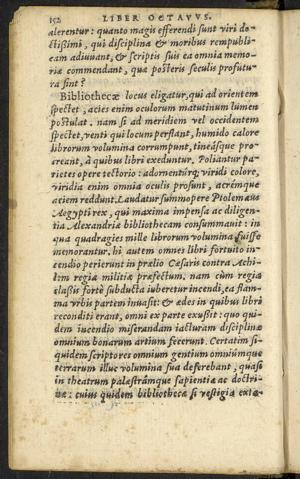 152 LIBER OCTAVVS.
alerentur: quanto magis efferendi sunt viri do-
ctißimi, qui disciplina & moribus rempubli-
cam adiuuant, & scriptis suis ea omnia memo-
riæ commendant, quæ posteris seculis profutu-
ra sint?
Bibliothecæ locus eligatur, qui ad orientem
spectet, acies enim oculorum matutinum lumen
postulat. nam si ad meridiem vel occidentem
spectet, venti qui locum perflant, humido calore
librorum volumina corrumpunt, tineásque pro-
creant, à quibus libri exeduntur. Poliantur pa-
rietes opere tectorio: adornentúrq; viridi colore,
viridia enim omnia oculis prosunt, acrémque
aciem reddunt. Laudatur summopere Ptolemæus
Aegypti rex, qui maxima impensa ac diligen-
tia Alexandriæ bibliothecam consummauit: in
qua quadragies mille librorum volumina fuisse
memorantur. hi autem omnes libri fortuito in-
cendio perierunt in prælio Cæsaris contra Achi-
lem regiæ militiæ præfectum. nam cùm regia
claßis fortè subducta iuberetur incendi, ea flam-
ma vrbis partem inuasit: & ædes in quibus libri
reconditi erant, omni ex parte exußit: quo qui-
dem incendio miserandam iacturam disciplinæ
omnium bonarum artium fecerunt. Certatim si-
quidem scriptores omnium gentium omniúmque
terrarum illuc volumina sua deferebant, quasi
in theatrum palæstrámque sapientiæ ac doctri-
næ: cuius quidem bibliothecæ si vestigia exta-